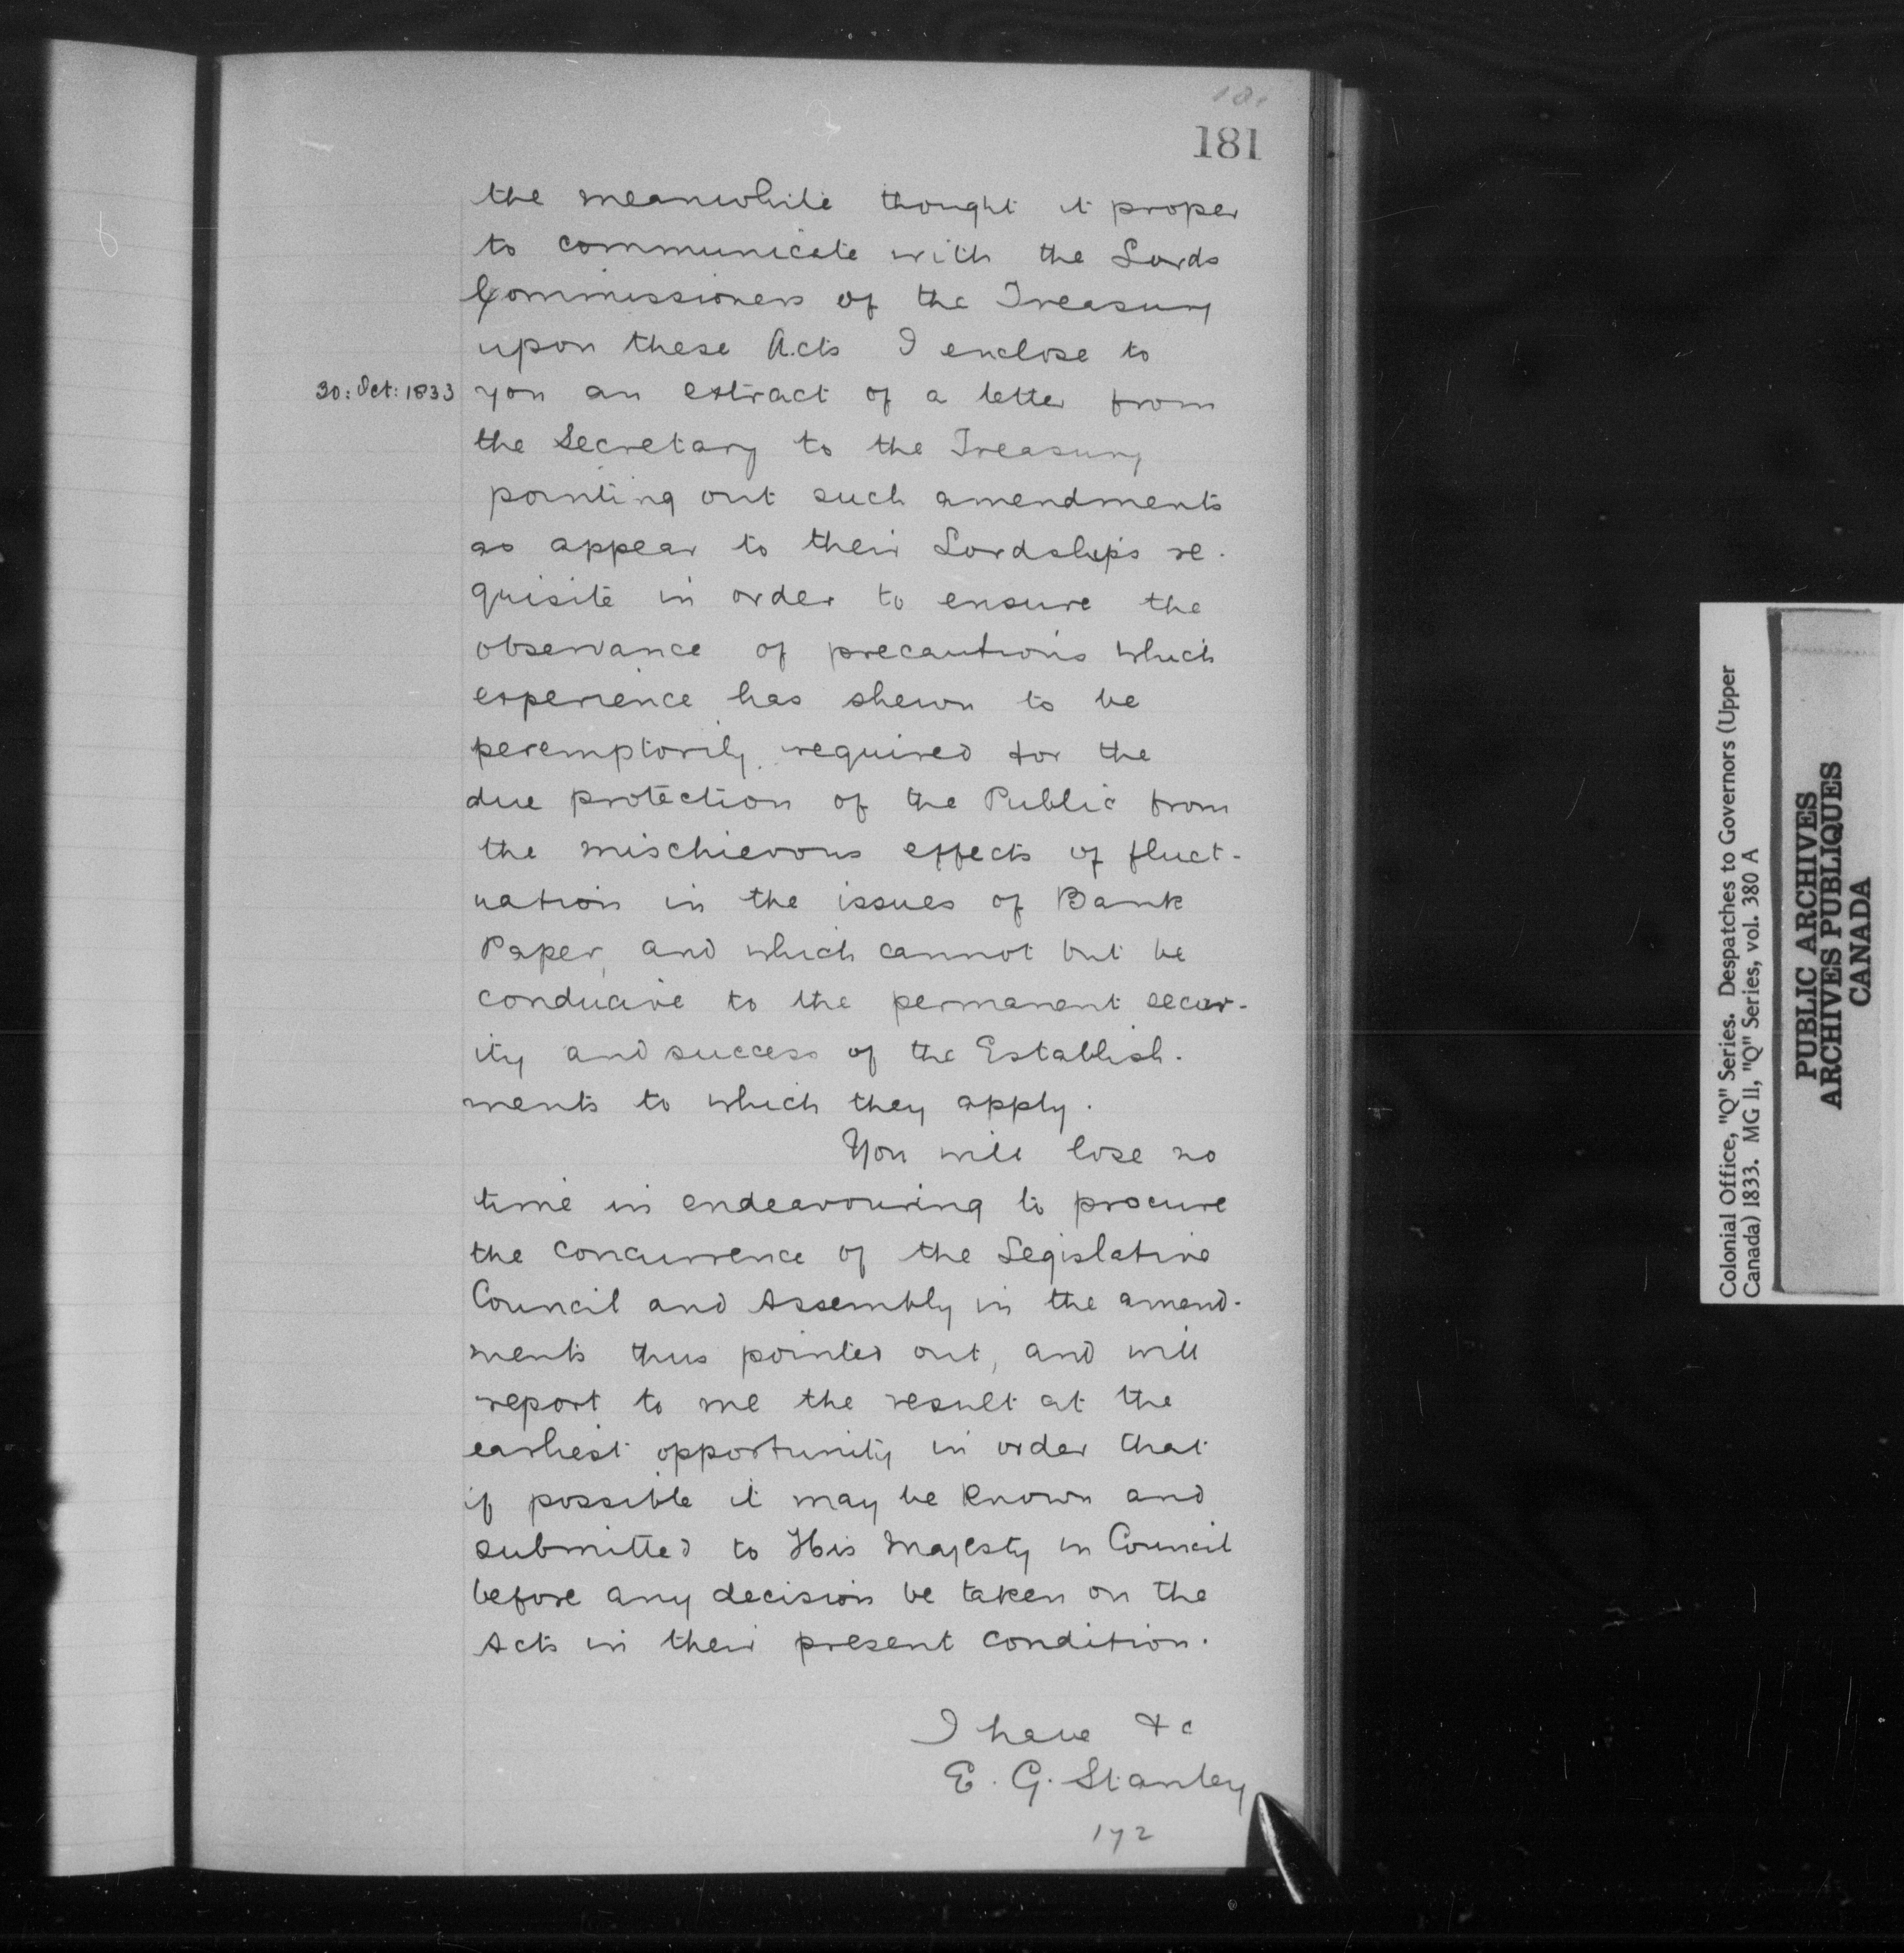 181
the meanwhile thought it proper
to communicate with the Lords
Commissioners of the Treasury
upon these Acts I enclose to
30: Oct: 1833 you an extract of a letter from
the Secretary to the Treasury
pointing out such amendments
as appear to their Lordships re-
quisite in order to ensure the
observance of precautions which
experience has shewn to be
peremptorily required for the
due protection of the Public from
the mischievous effects of fluct-
uation in the issues of Bank
Paper, and which cannot but be
conducive to the permanent secur-
ity and success of the Establish-
ments to which they apply.
You will lose no
time in endeavouring to procure
the concurrence of the Legislative
Council and Assembly in the amend-
ments thus pointed out, and will
report to me the result at the
earliest opportunity in order that
if possible it may be known and
submitted to His Majesty in Council
before any decision be taken on the
Acts in their present condition.
I have &c
E. G. Stanley
172
Colonial Office, "Q" Series. Despatches to Governors (Upper
Canada) 1833. MG 11, "Q" Series, vol. 380 A
PUBLIC ARCHIVES
ARCHIVES PUBLIQUES
CANADA